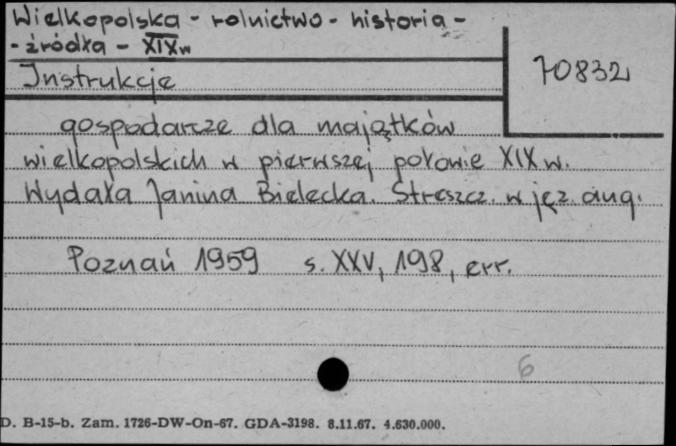 Wielkopolska - rolnictwo - historia -
- źródła - XIXw
70832
Instrukcje
gospodarcze dla majątków
wielkopolskich w pierwszej połowie XIX w.
Wydała Janina Bielecka. Streszcz. w jęz. ang.
Poznań 1959 s. XXV, 198, err.
6
D. B-15-b. Zam. 1726-DW-On-67. GDA-3198. 8.11.67. 4.630.000.